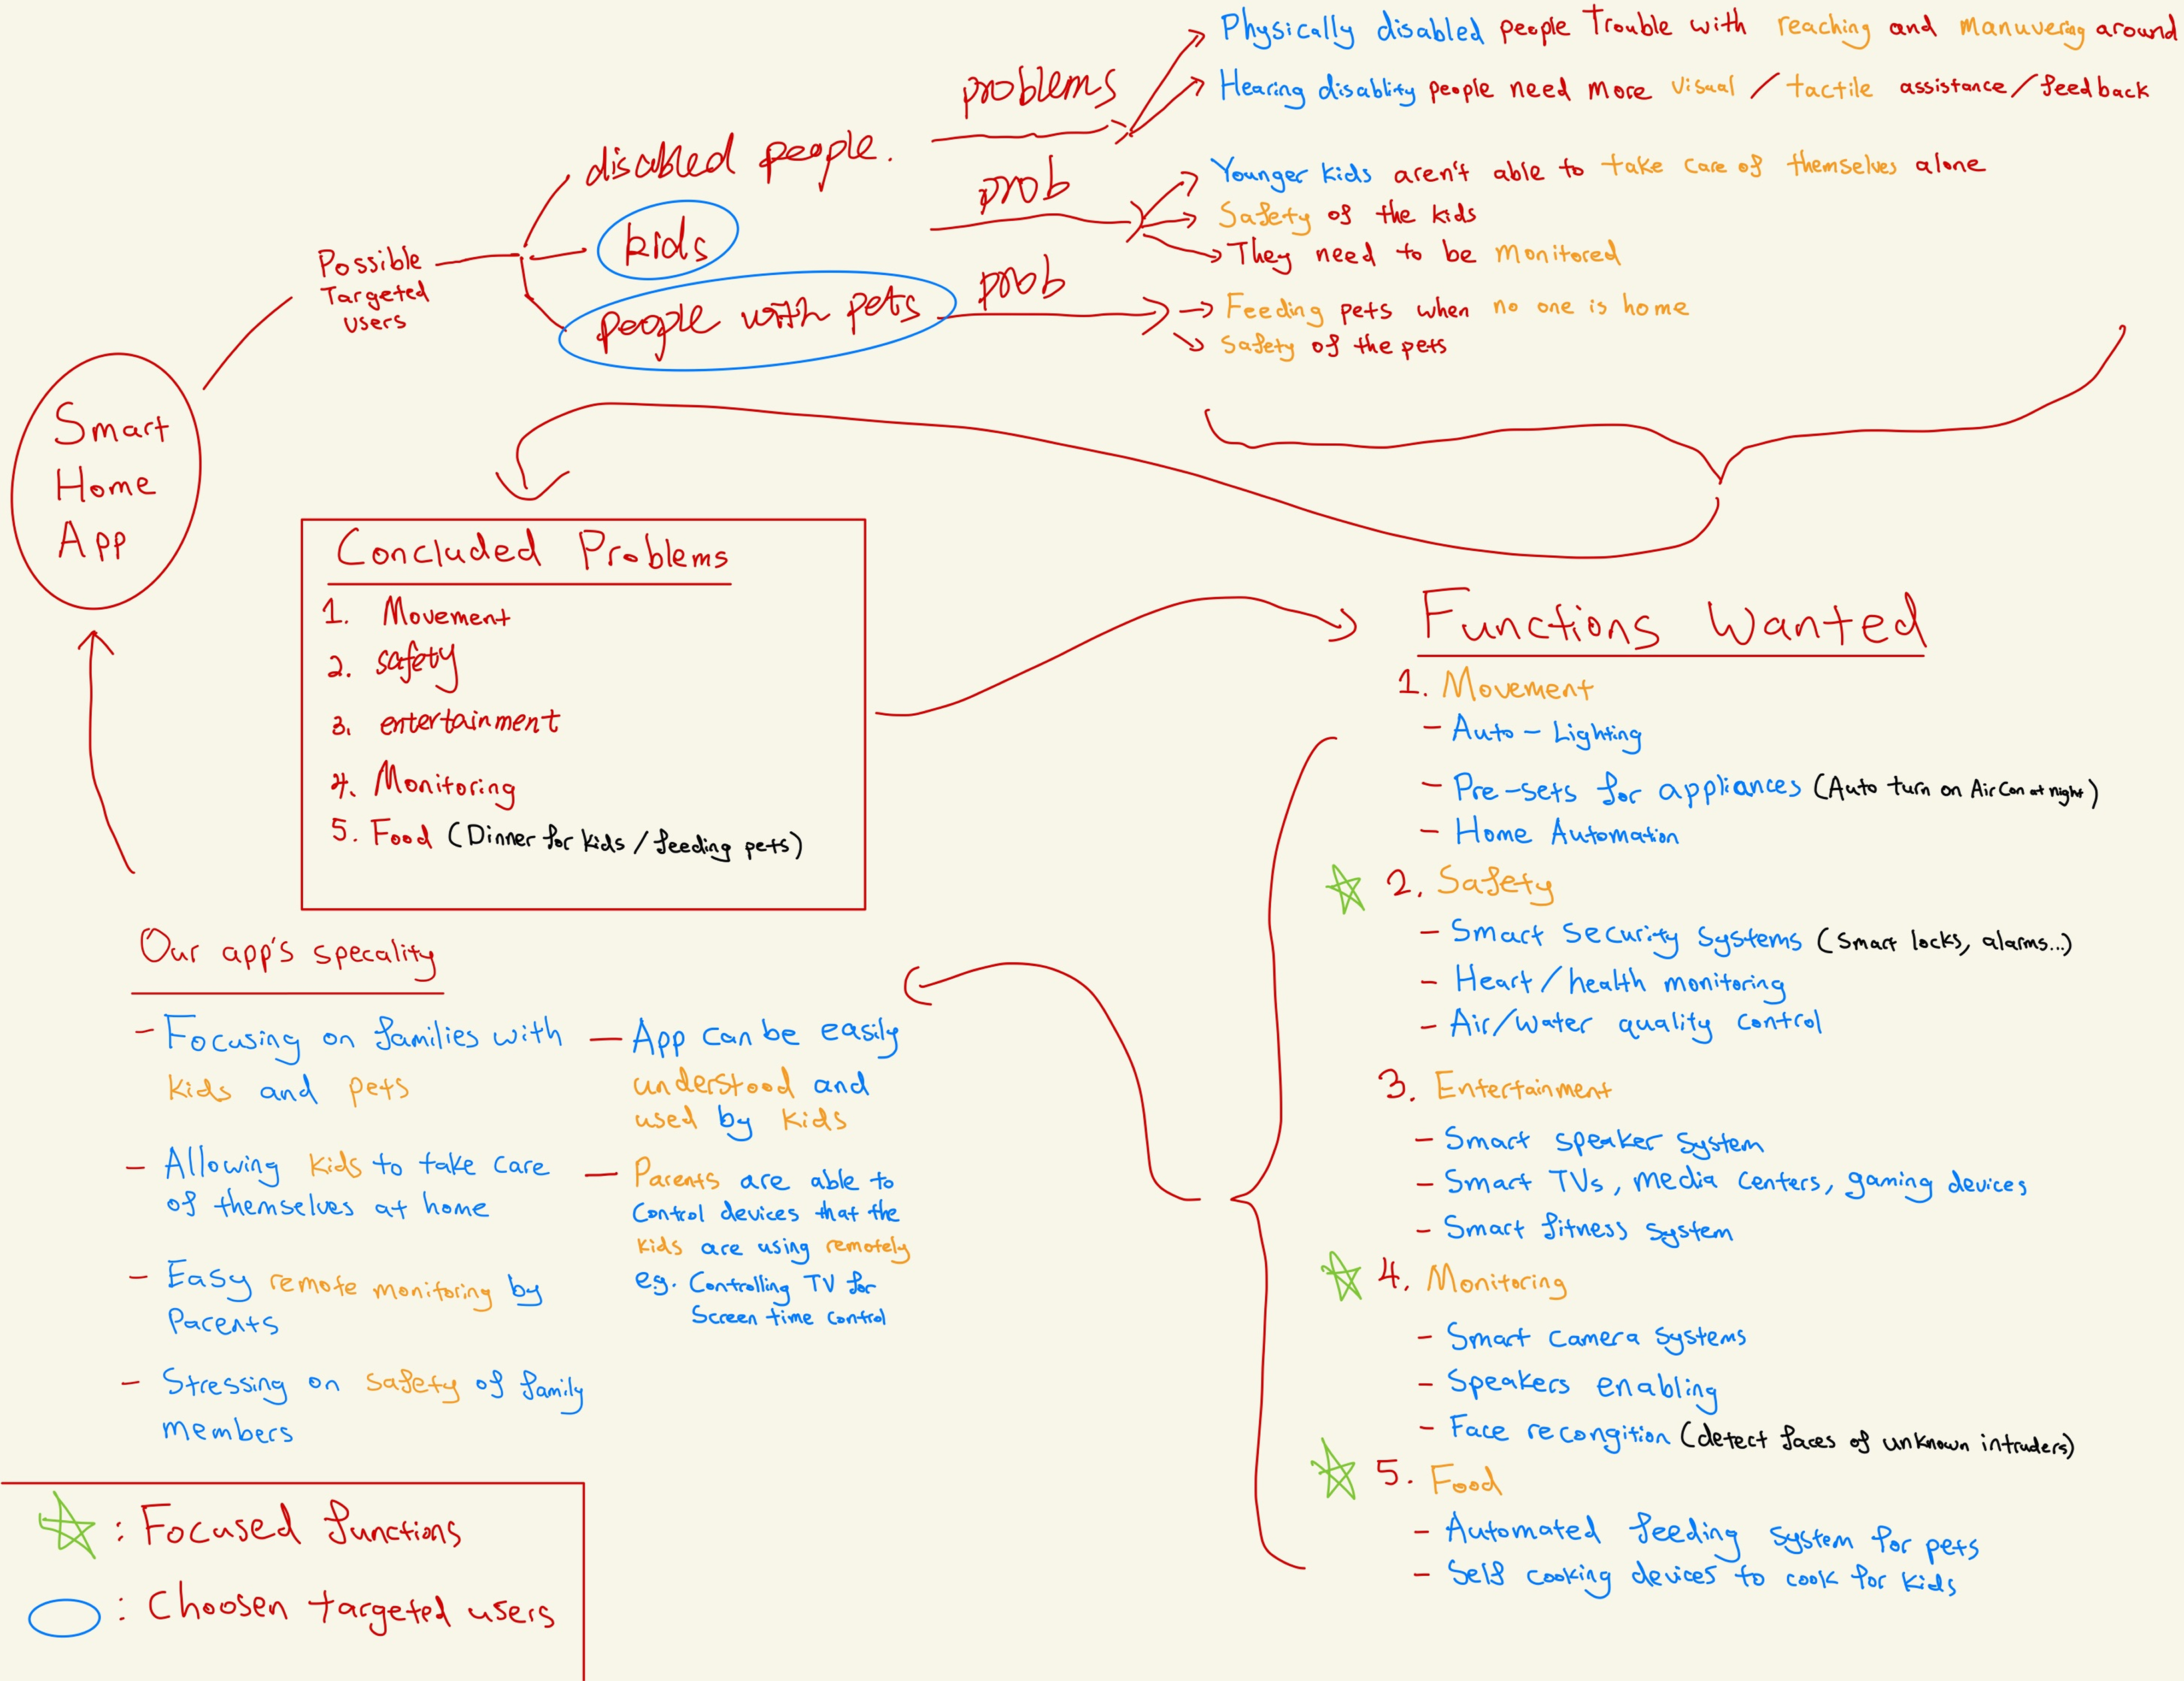 Smart
Home
App
Possible
Targeted
users
disabled people.
kids
people with pets
problems
Physically disabled people Trouble with reaching and manuvering around
Hearing disablity people need more visual / tactile assistance/feedback
prob
Younger kids aren't able to take care of themselves alone
Safety of the kids
They need to be monitored
prob
Feeding pets when no one is home
Safety of the pets
Concluded Problems
1. Movement
2. safety
3. entertainment
4. Monitoring
5. Food (Dinner for kids / feeding pets)
Functions Wanted
1. Movement
- Auto - Lighting
- Pre-sets for appliances (Auto turn on AirCon at night)
- Home Automation
2. Safety
- Smart security systems (smart locks, alarms...)
- Heart/health monitoring
- Air/Water quality control
3. Entertainment
- Smart speaker system
- Smart TVs, media centers, gaming devices
- Smart fitness system
4. Monitoring
- Smart camera systems
- Speakers enabling
- Face recongition (detect faces of unknown intruders)
5. Food
- Automated feeding system for pets
- Self cooking devices to cook for kids
Our app's specality
- Focusing on families with
kids and pets
- Allowing kids to take care
of themselves at home
- Easy remote monitoring by
Parents
- Stressing on safety of family
members
- App can be easily
understood and
used by kids
- Parents are able to
control devices that the
kids are using remotely
eg. Controlling TV for
Screen time control
: Focused functions
: Choosen targeted users